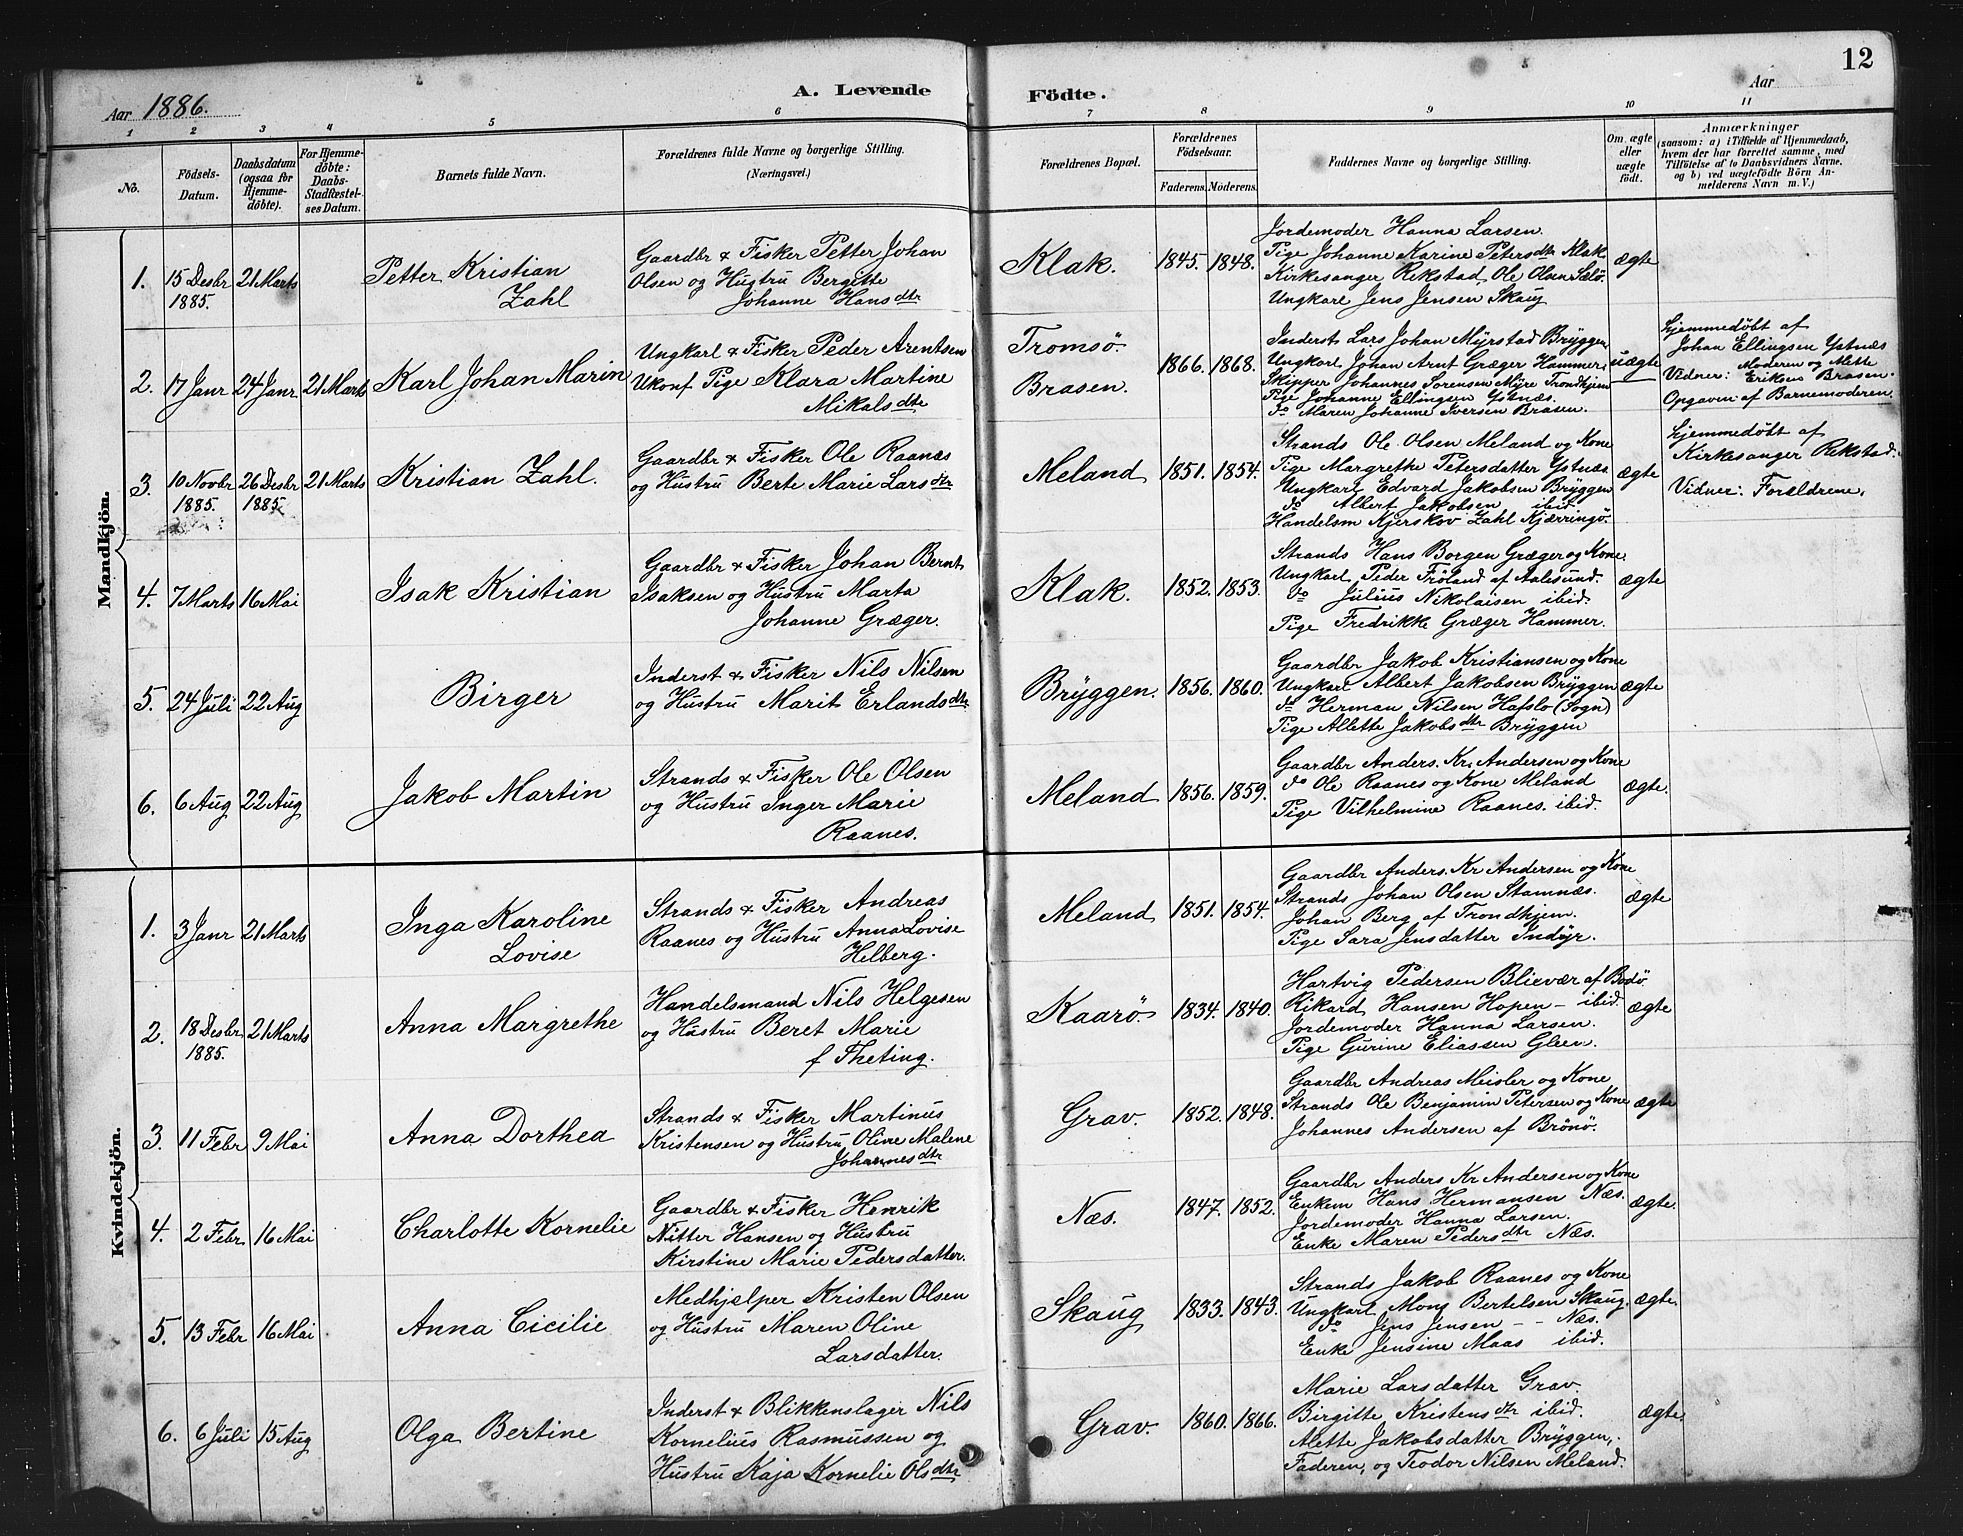 Aar 1886.
A. Levende Födte.
Aar
12
1 2 3 4 5 6 7 8 9 10 11
No.
Födsels-
Datum.
Daabsdatum
(ogsaa for
Hjemme-
döbte).
For Hjemme-
döbte:
Daabs-
Stadfæstel-
ses Datum.
Barnets fulde Navn.
Forældrenes fulde Navne og borgerlige Stilling.
(Næringsvei.)
Forældrenes Bopæl.
Forældrenes
Födselsaar.
Faderens. Moderens.
Faddernes Navne og borgerlige Stilling.
Om ægte
eller
uægte
födt.
Anmærkninger
(saasom: a) i Tilfælde af Hjemmedaab,
hvem der har forrettet samme, med
Tilföielse af to Daabsvidners Navne,
og b) ved uægtefödte Börn An-
melderens Navn m. V.)
Mandkjön.
1. 15 Desbr 21 Marts
1885.
Petter Kristian
Zahl
Gaardbr & Fisker Petter Johan
Olsen og Hustru Bergitte
Johanne Hansdtr
Klak. 1845. 1848.
Jordemoder Hanna Larsen.
Pige Johanne Karine Petersdtr Klak.
Kirkesanger Rekstad, Ole Olsen Sælø.
Ungkarl Jens Jensen Skaug
ægte
2. 17 Janr 24 Janr 21 Marts
Karl Johan Marin
Ungkarl & Fisker Peder Arentsen
Ukonf. Pige Klara Martine
Mikalsdtr
Tromsö.
Brasen.
1866. 1868.
Inderst Lars Johan Myrstad Bryggen
Ungkarl Johan Arnt Græger Hammer
Skipper Johannes Sorensen Myre Trondhjem
Pige Johanne Ellingsen Ystnæs.
do Maren Johanne Iversen Brasen.
uægte
Hjemmedøbt af
Johan Ellingsen Ystnæs
Vidner: Moderen og Mette
Eriksen Brasen.
Opgaven af Barnemoderen.
3. 10 Novbr 26 Desbr 21 Marts
1885. 1885.
Kristian Zahl.
Gaardbr & Fisker Ole Raanæs
og Hustru Berte Marie Larsdtr
Meland 1851. 1854.
Strands. Ole Olsen Meland og Kone
Pige Margrethe Petersdatter Ystnæs
Ungkarl Edvard Jakobsen Bryggen
do Albert Jakobsen ibid.
Handelsm Kjerskov Zahl Kjærringö.
ægte
Hjemmedøbt af
Kirkesanger Rekstad.
Vidner: Forældrene.
4. 7 Marts 16 Mai
Isak Kristian
Gaardbr & Fisker Johan Bernt
Isaksen og Hustru Marta
Johanne Græger.
Klak. 1852. 1853.
Strands Hans Borgen Græger og Kone
Ungkarl Peder Fröland af Aalesund.
do Julius Nikolaisen ibid.
Pige Fredrikke Græger Hammer.
ægte
5. 24 Juli 22 Aug
Birger
Inderst & Fisker Nils Nilsen
og Hustru Marit Erlandsdtr
Bryggen. 1856. 1860.
Gaardbr Jakob Kristiansen og Kone
Ungkarl Albert Jakobsen Bryggen
do Herman Nilsen Hafslo (Sogn)
Pige Allette Jakobsdtr Bryggen
ægte
6. 6 Aug 22 Aug
Jakob Martin
Strands & Fisker Ole Olsen
og Hustru Inger Marie
Raanes.
Meland 1856. 1859.
Gaardbr Anders. Kr. Andersen og Kone
do Ole Raanes og Kone Meland
Pige Vilhelmine Raanes. ibid.
ægte.
Kvindekjön.
1. 3 Janr 21 Marts
Inga Karoline
Lovise
Strands & Fisker Andreas
Raanes og Hustru Anna Lovise
Helberg.
Meland 1851. 1854.
Gaardbr Anders. Kr Andersen og Kone
Strands Johan Olsen Stamnæs.
Johan Berg af Trondhjem.
Pige Sara Jensdatter Indyr.
ægte
2. 18 Desbr 21 Marts
1885.
Anna Margrethe
Handelsmand Nils Helgesen
og Hustru Beret Marie
f Theting.
Kaarö 1834. 1840.
Hartvig Pedersen Blievær af Bodö
Rikard Hansen Hopen – ibid.
Jordemoder Hanna Larsen.
Pige Gurine Eliassen Gleen.
ægte
3. 11 Febr 9 Mai
Anna Dorthea
Strands & Fisker Martinus
Kristensen og Hustru Oline Malene
Johannesdtr
Grav. 1852. 1848.
Gaardbr Andreas Meisler og Kone
Strands Ole Benjamin Petersen og Kone
Johannes Andersen af Brönö.
ægte
4. 2 Febr 16 Mai
Charlotte Kornelie
Gaardbr & Fisker Henrik
Nitter Hansen og Hustru
Kirstine Marie Pedersdatter.
Næs. 1847. 1852.
Gaardbr Anders Kr Andersen og Kone
Enkem Hans Hermansen Næs.
Jordemoder Hanna Larsen.
Enke Maren Pedersdtr Næs.
ægte.
5. 13 Febr 16 Mai
Anna Cicilie
Medhjælper Kristen Olsen
og Hustru Maren Oline
Larsdatter.
Skaug 1833. 1843.
Strands Jakob Raanes og Kone
Ungkarl Mons Bertelsen Skaug.
do Jens Jensen – – Næs.
Enke Jensine Maas ibid.
ægte.
6. 6 Juli 15 Aug
Olga Bertine
Inderst & Blikkenslager Nils
Kornelius Rasmussen og
Hustru Kaja Kornelie Olsdtr
Grav. 1860. 1866.
Marie Larsdatter Grav.
Birgitte Kristensdtr ibid.
Alette Jakobsdatter Bryggen,
Faderen, og Teodor Nilsen Meland.
ægte.